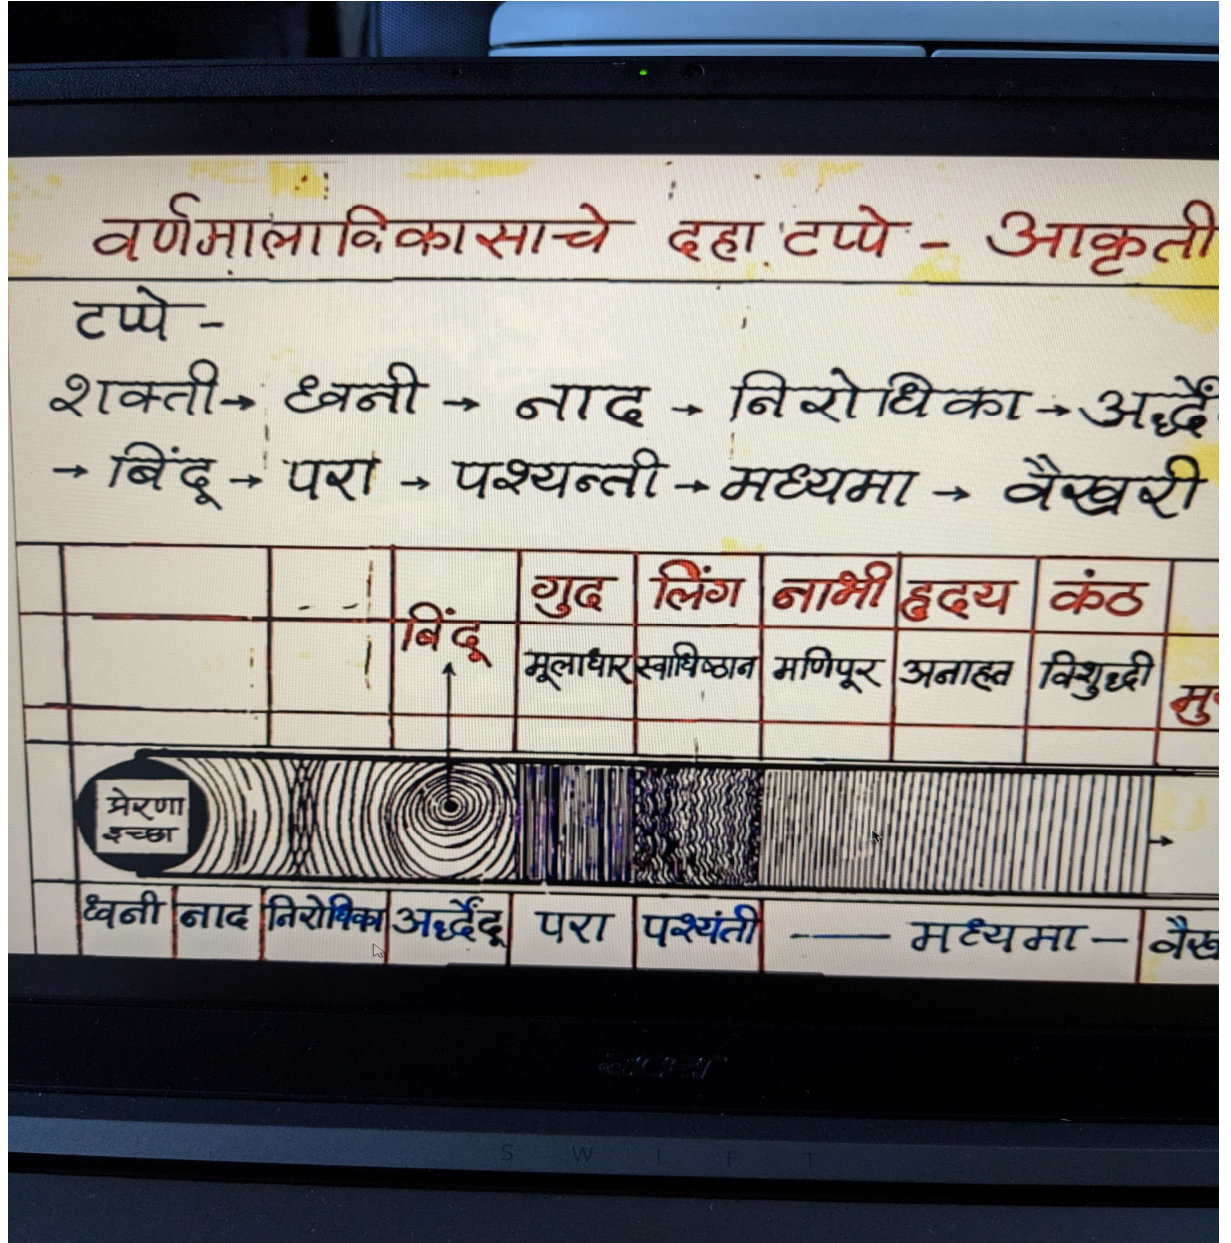 वर्णमालाविकासाचे दहा टप्पे - आकृती
टप्पे -
शक्ती → ध्वनी → नाद → निरोधिका → अर्द्धें
→ बिंदू → परा → पश्यन्ती → मध्यमा → वैखरी
गुद लिंग नाभी हृदय कंठ
बिंदू
मूलाधार स्वाधिष्ठान मणिपूर अनाहत विशुद्धी
मु
प्रेरणा
इच्छा
ध्वनी नाद निरोधिका अर्द्धेंदू परा पश्यंती —— मध्यमा — वैख
acer
SWIFT